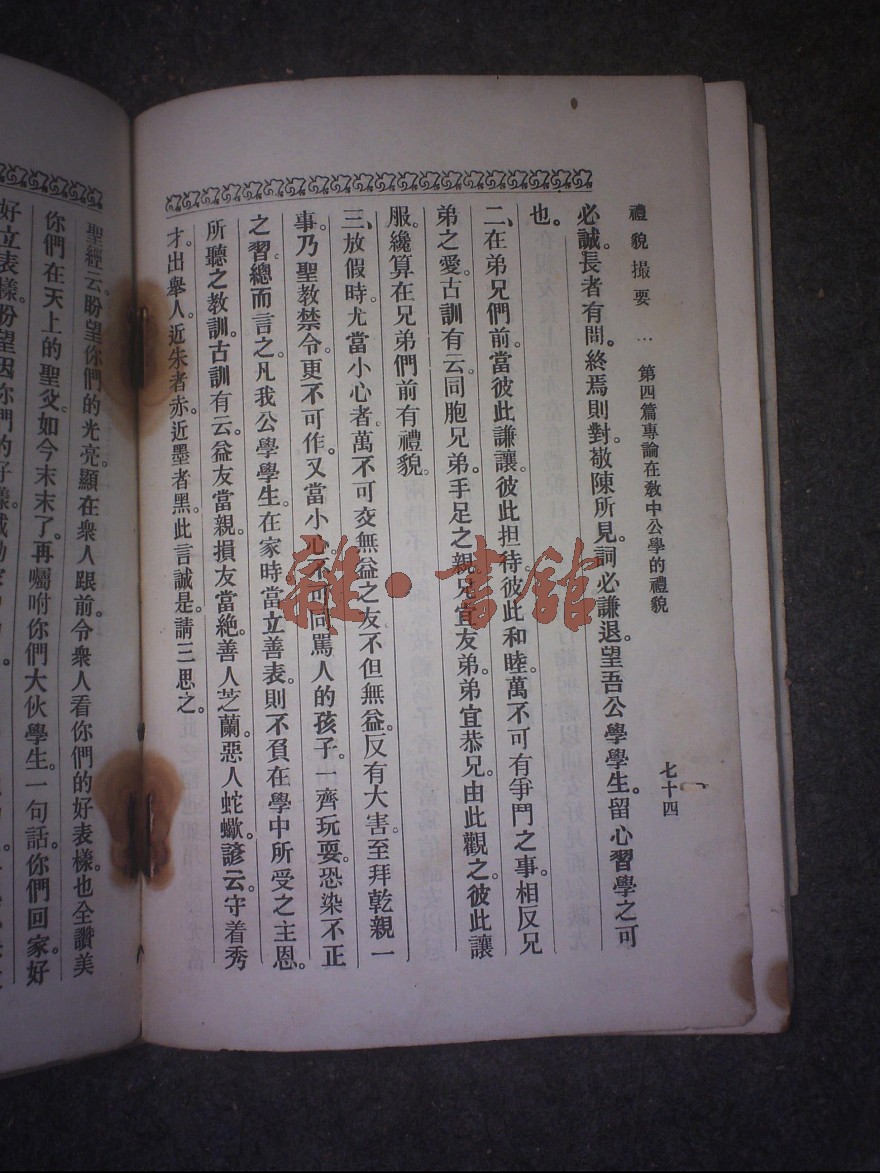 禮貌撮要 … 第四篇專論在敎中公學的禮貌 七十四
必誠。長者有問。終焉則對。敬陳所見。詞必謙退。望吾公學學生。留心習學之可
也。
二、在弟兄們前。當彼此謙讓。彼此担待。彼此和睦。萬不可有爭鬥之事。相反兄
弟之愛。古訓有云。同胞兄弟。手足之親。兄宜友弟。弟宜恭兄。由此觀之。彼此讓
服。纔算在兄弟們前有禮貌。
三、放假時。尤當小心者。萬不可交無益之友。不但無益。反有大害。至拜乾親一
事。乃聖敎禁令。更不可作。又當小心。不可同罵人的孩子。一齊玩耍。恐染不正
之習。總而言之。凡我公學學生。在家時當立善表。則不負在學中所受之主恩。
所聽之敎訓。古訓有云。益友當親。損友當絕。善人芝蘭。惡人蛇蠍。諺云。守着秀
才。出舉人。近朱者赤。近墨者黑。此言誠是。請三思之。
聖經云。盼望你們的光亮。顯在衆人跟前。令衆人看你們的好表樣。也全讚美
你們在天上的聖父。如今末末了。再囑咐你們大伙學生。一句話。你們回家好
好立表樣。盼望因你們的好樣。
雜·書館